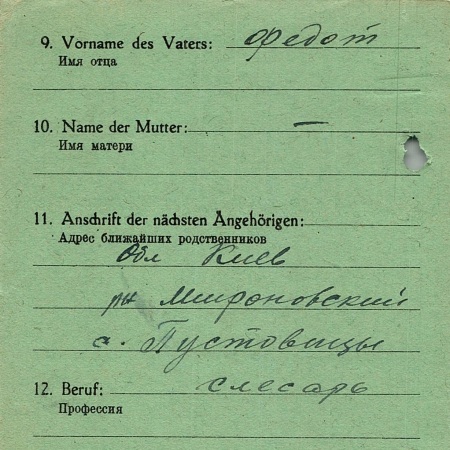 9. Vorname des Vaters: Федот
Имя отца
10. Name der Mutter: —
Имя матери
11. Anschrift der nächsten Angehörigen:
Адрес ближайших родственников
Обл Киев
рн Мироновский
с. Пустовицы
12. Beruf: слесарь
Профессия